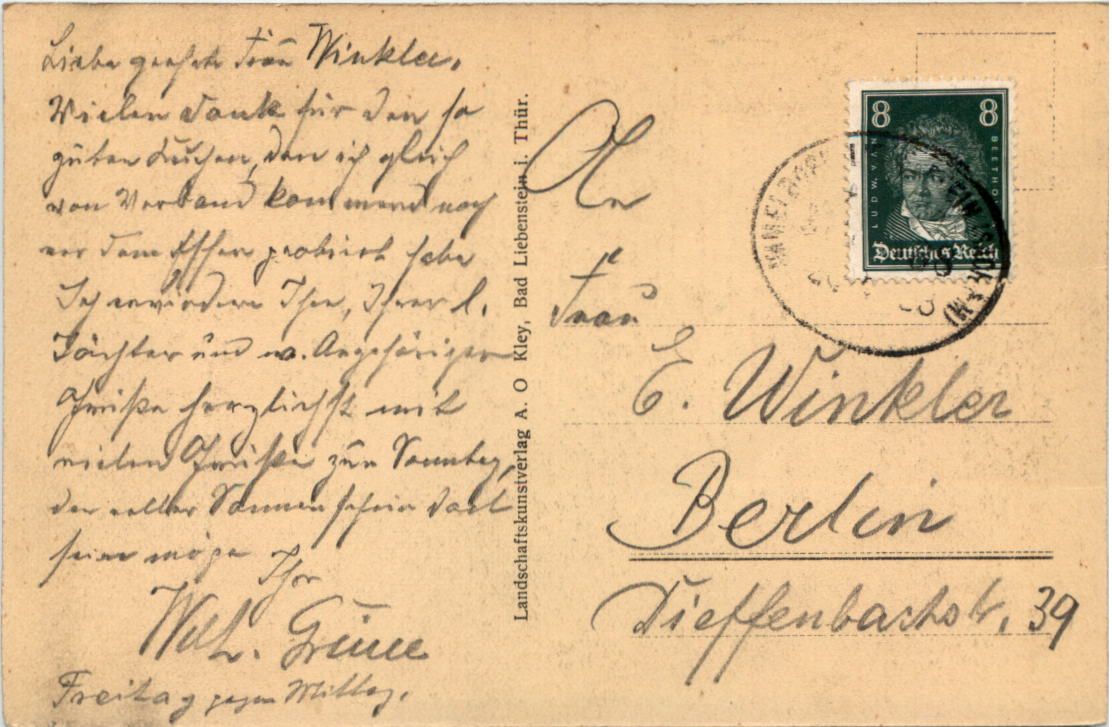 Liebe geehrte Frau Winkler.
Vielen Dank für den so
guten Kuchen, den ich gleich
von Verband kommend noch
vor dem Essen probiert habe
Ich erwidere Ihre, Ihrer l.
Töchter und w. Angehörigen
Grüße herzlichst mit
vielen Grüßen zum Sonntag,
der voller Sonnenschein dort
sein möge
Ihr
Wilh. Grüne
Freitag gegen Mittag.
Landschaftskunstverlag A. O Kley, Bad Liebenstein i. Thür.
An
Frau
E. Winkler
Berlin
Dieffenbachstr. 39
8 8
LUDW. VAN BEETHOVEN
Deutsches Reich